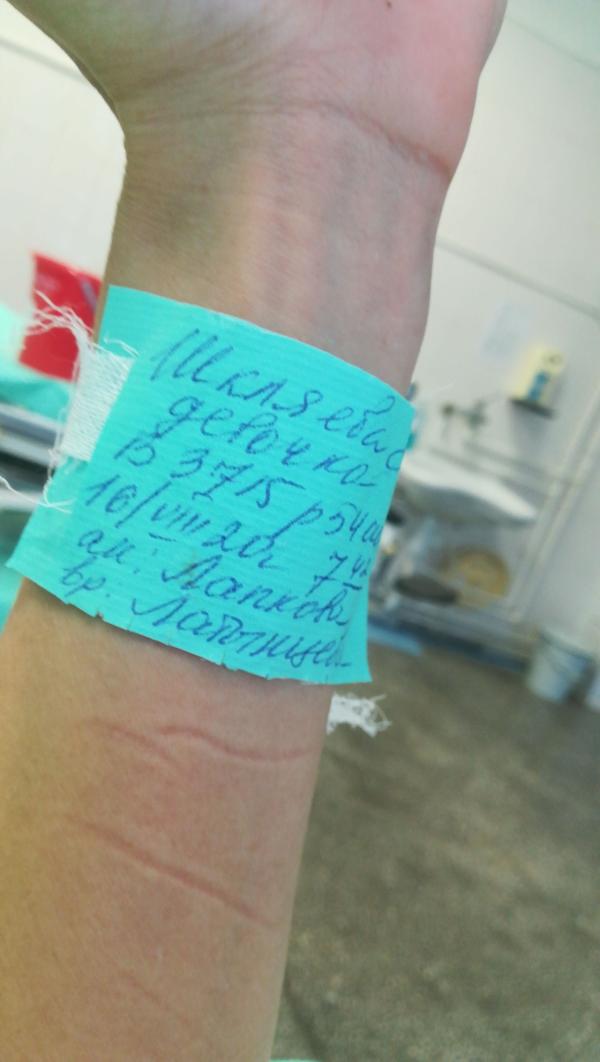 Шкляева С
девочка
В 3715 р 54 см
16/VIII 20г 7 ч
ак: Лапкова
вр: Латынцев